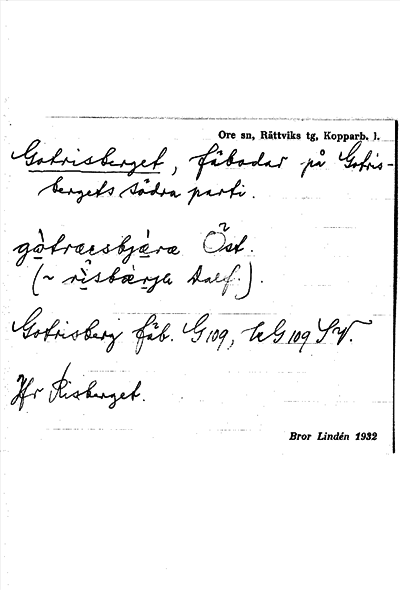 Ore sn, Rättviks tg, Kopparb. l.
Gotrisberget, fäbodar på Gotris-
bergets södra parti.
gòtræsbjæ̀ræ Öst.
(~ rìsbærja Dalf.).
Gotrisberg fäb. G 109, LG 109 SV.
Jfr Risberget.
Bror Lindén 1932